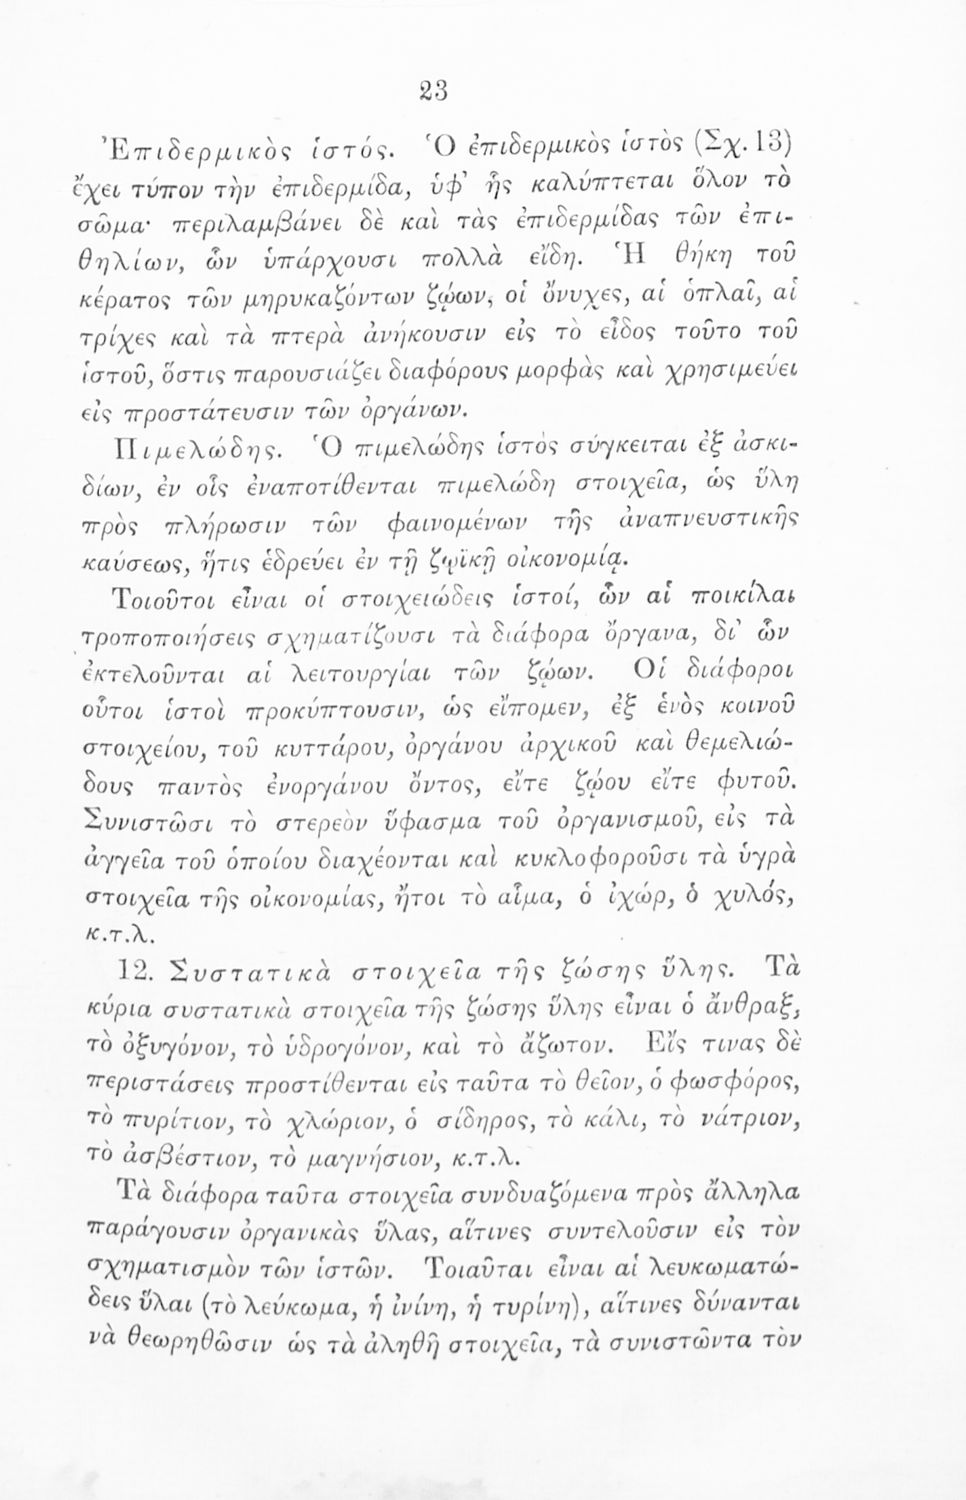 23
Ἐπιδερμικὸς ἱστός. Ὁ ἐπιδερμικὸς ἱστὸς (Σχ. 13)
ἔχει τύπον τὴν ἐπιδερμίδα, ὑφ' ἧς καλύπτεται ὅλον τὸ
σῶμα· περιλαμβάνει δὲ καὶ τὰς ἐπιδερμίδας τῶν ἐπι-
θηλίων, ὧν ὑπάρχουσι πολλὰ εἴδη. Ἡ θήκη τοῦ
κέρατος τῶν μηρυκαζόντων ζῴων, οἱ ὄνυχες, αἱ ὁπλαῖ, αἱ
τρίχες καὶ τὰ πτερὰ ἀνήκουσιν εἰς τὸ εἶδος τοῦτο τοῦ
ἱστοῦ, ὅστις παρουσιάζει διαφόρους μορφὰς καὶ χρησιμεύει
εἰς προστάτευσιν τῶν ὀργάνων.
Πιμελώδης. Ὁ πιμελώδης ἱστὸς σύγκειται ἐξ ἀσκι-
δίων, ἐν οἷς ἐναποτίθενται πιμελώδη στοιχεῖα, ὡς ὕλη
πρὸς πλήρωσιν τῶν φαινομένων τῆς ἀναπνευστικῆς
καύσεως, ἥτις ἑδρεύει ἐν τῇ ζῳϊκῇ οἰκονομίᾳ.
Τοιοῦτοι εἶναι οἱ στοιχειώδεις ἱστοί, ὧν αἱ ποικίλαι
τροποποιήσεις σχηματίζουσι τὰ διάφορα ὄργανα, δι' ὧν
ἐκτελοῦνται αἱ λειτουργίαι τῶν ζῴων. Οἱ διάφοροι
οὗτοι ἱστοὶ προκύπτουσιν, ὡς εἴπομεν, ἐξ ἑνὸς κοινοῦ
στοιχείου, τοῦ κυττάρου, ὀργάνου ἀρχικοῦ καὶ θεμελιώ-
δους παντὸς ἐνοργάνου ὄντος, εἴτε ζῴου εἴτε φυτοῦ.
Συνιστῶσι τὸ στερεὸν ὕφασμα τοῦ ὀργανισμοῦ, εἰς τὰ
ἀγγεῖα τοῦ ὁποίου διαχέονται καὶ κυκλοφοροῦσι τὰ ὑγρὰ
στοιχεῖα τῆς οἰκονομίας, ἤτοι τὸ αἷμα, ὁ ἰχώρ, ὁ χυλός,
κ.τ.λ.
12. Συστατικὰ στοιχεῖα τῆς ζώσης ὕλης. Τὰ
κύρια συστατικὰ στοιχεῖα τῆς ζώσης ὕλης εἶναι ὁ ἄνθραξ,
τὸ ὀξυγόνον, τὸ ὑδρογόνον, καὶ τὸ ἄζωτον. Εἴς τινας δὲ
περιστάσεις προστίθενται εἰς ταῦτα τὸ θεῖον, ὁ φωσφόρος,
τὸ πυρίτιον, τὸ χλώριον, ὁ σίδηρος, τὸ κάλι, τὸ νάτριον,
τὸ ἀσβέστιον, τὸ μαγνήσιον, κ.τ.λ.
Τὰ διάφορα ταῦτα στοιχεῖα συνδυαζόμενα πρὸς ἄλληλα
παράγουσιν ὀργανικὰς ὕλας, αἵτινες συντελοῦσιν εἰς τὸν
σχηματισμὸν τῶν ἱστῶν. Τοιαῦται εἶναι αἱ λευκωματώ-
δεις ὕλαι (τὸ λεύκωμα, ἡ ἰνίνη, ἡ τυρίνη), αἵτινες δύνανται
νὰ θεωρηθῶσιν ὡς τὰ ἀληθῆ στοιχεῖα, τὰ συνιστῶντα τὸν